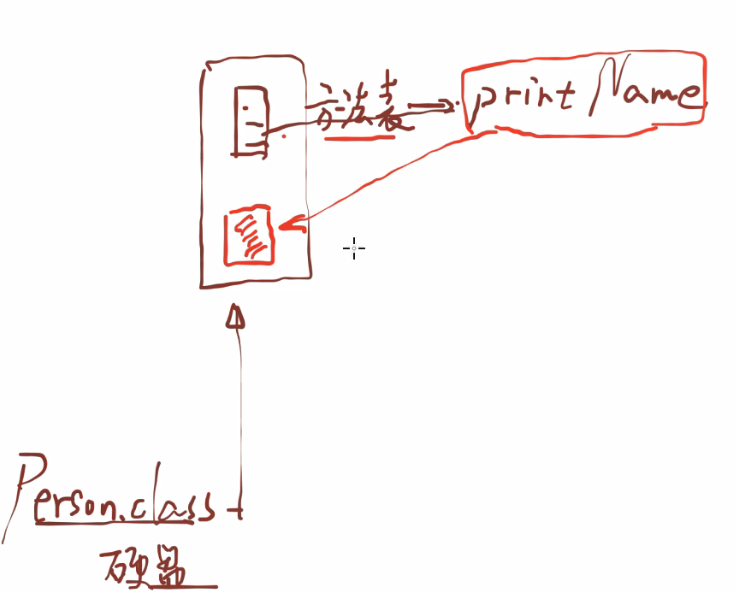 方法表
printName
Person.class
硬盘